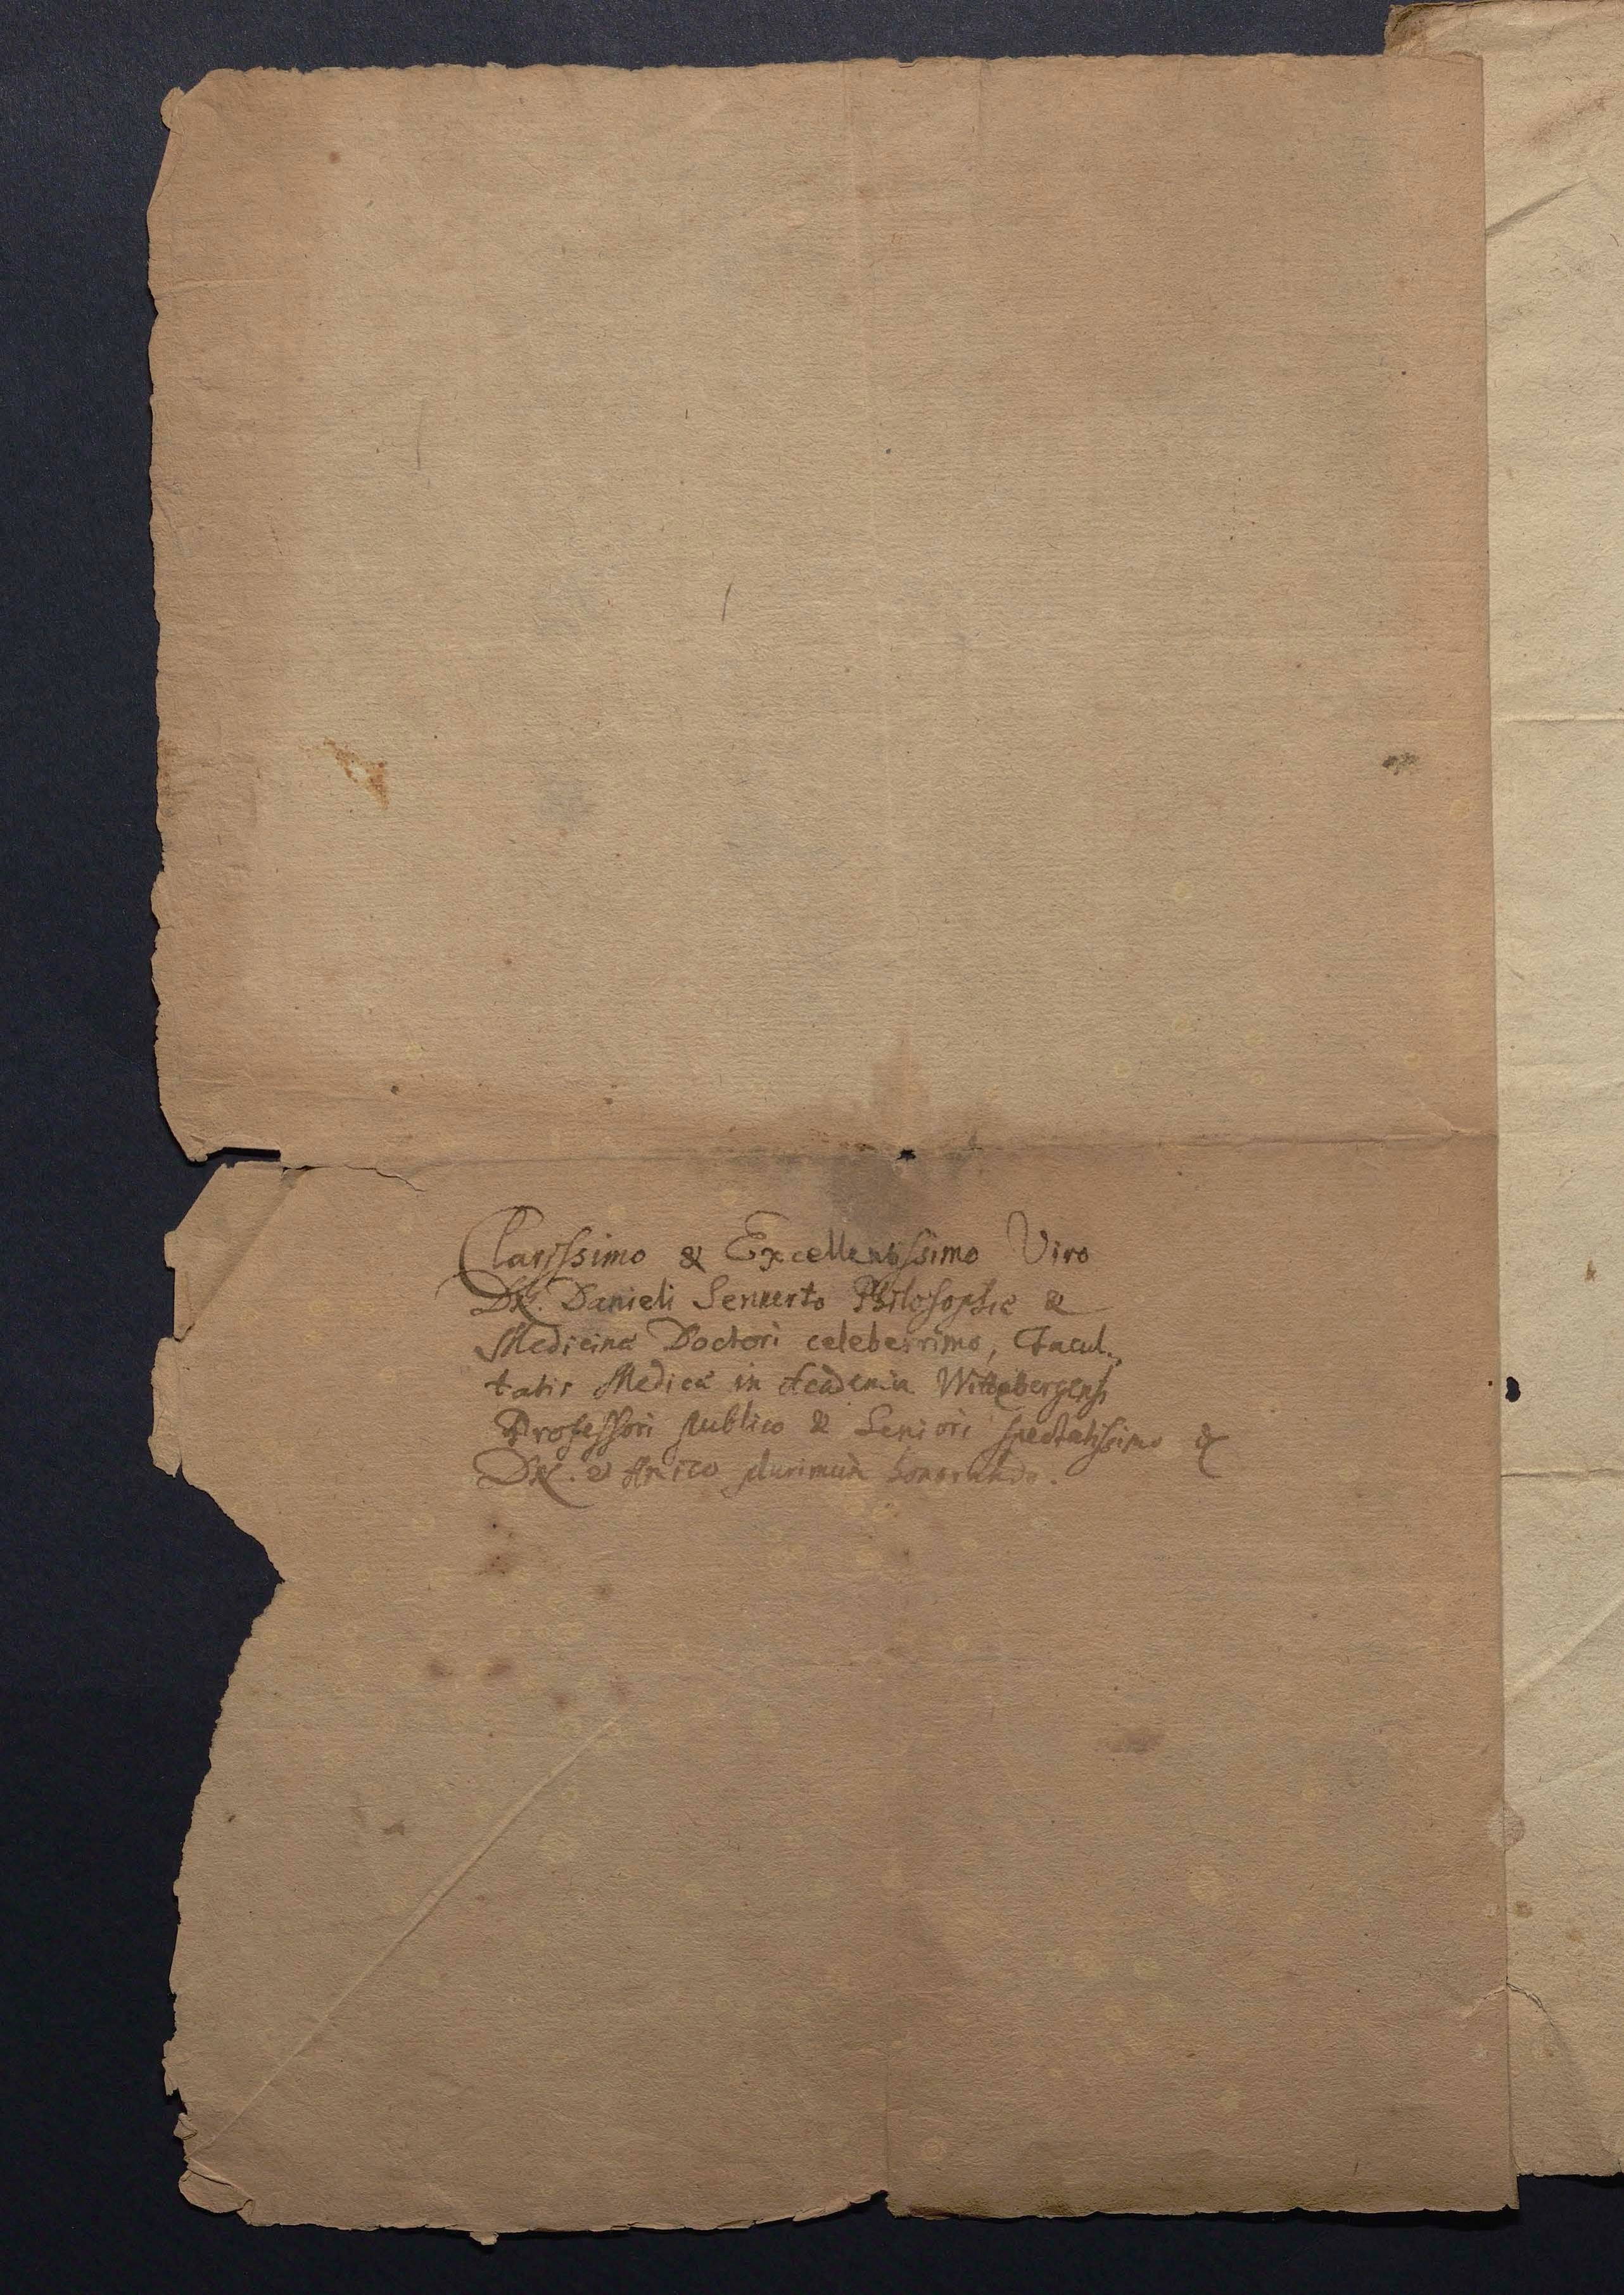 Clarissimo & Excellentissimo Viro
Dn. Danieli Sennerto Philosophiæ &
Medicinæ Doctori celeberrimo, Facul-
tatis Medicæ in Academia Wittebergensi
Professori publico & Seniori spectatissimo &
Dn. & Amico plurimùm honorando.